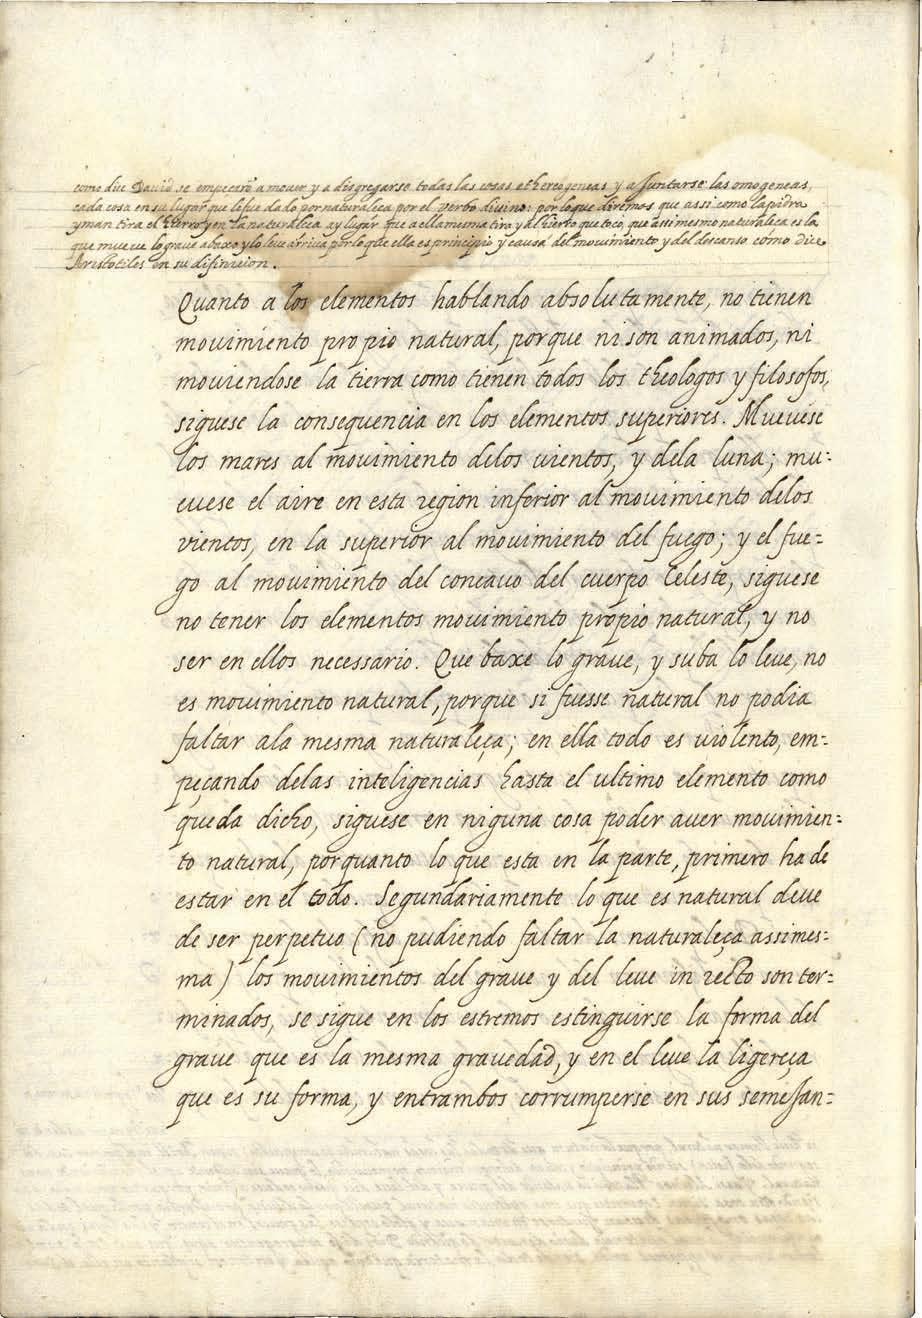 como dice David se empeçarõ a mouer y a disgregarse todas las cosas ethereogeneas y a Juntarse las omogeneas,
cada cosa en su lugar que le fue dado por naturaleça por el verbo divino: por lo que diremos que assi como la piedra
yman tira el hierro y en la naturaleça ay lugar que a ella mesma tira y al hierro que toco, que assi mesmo naturaleça es la
que mueve lo grave abaxo y lo leve arriva por lo que ella es principio y causa del movimiento y del descanso como dice
Aristotiles en su difinicion.
Quanto a los elementos hablando absolutamente, no tienen
mouimiento propio natural, porque ni son animados, ni
mouiendose la tierra como tienen todos los theologos y filosofos,
siguese la consequencia en los elementos superiores. Mueuese
los mares al mouimiento delos uientos, y dela luna; mu-
euese el aire en esta region inferior al mouimiento delos
vientos, en la superior al mouimiento del fuego; y el fue-
go al mouimiento del concauo del cuerpo Celeste, siguese
no tener los elementos mouimiento propio natural, y no
ser en ellos necessario. Que baxe lo graue, y suba lo leue, no
es mouimiento natural, porque si fuesse natural no podia
faltar ala mesma naturaleça; en ella todo es uiolento, em-
peçando delas inteligencias hasta el ultimo elemento como
queda dicho, siguese en niguna cosa poder auer mouimien-
to natural, porquanto lo que esta en la parte, primero ha de
estar en el todo. Segundariamente lo que es natural deue
de ser perpetuo (no pudiendo faltar la naturaleça assimes-
ma) los mouimientos del graue y del leue in recto son ter-
minados, se sigue en los estremos estinguirse la forma del
graue que es la mesma grauedad, y en el leue la ligereça
que es su forma, y entrambos corrumperse en sus semeJan-